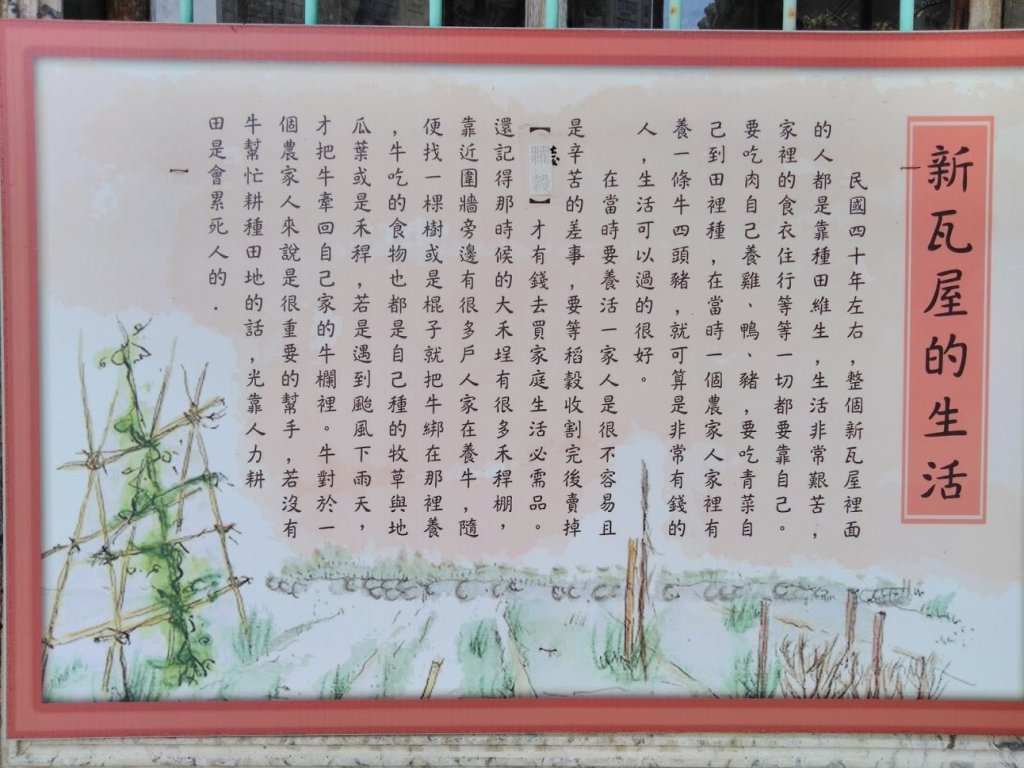 新瓦屋的生活
民國四十年左右，整個新瓦屋裡面
的人都是靠種田維生，生活非常艱苦，
家裡的食衣住行等等一切都要靠自己。
要吃肉自己養雞、鴨、豬，要吃青菜自
己到田裡種，在當時一個農家人家裡有
養一條牛四頭豬，就可算是非常有錢的
人，生活可以過的很好。
在當時要養活一家人是很不容易且
是辛苦的差事，要等稻穀收割完後賣掉
【糶穀】才有錢去買家庭生活必需品。
還記得那時候的大禾埕有很多禾稈棚，
靠近圍牆旁邊有很多戶人家在養牛，隨
便找一棵樹或是棍子就把牛綁在那裡養
，牛吃的食物也都是自己種的牧草與地
瓜葉或是禾稈，若是遇到颱風下雨天，
才把牛牽回自己家的牛欄裡。牛對於一
個農家人來說是很重要的幫手，若沒有
牛幫忙耕種田地的話，光靠人力耕
田是會累死人的．